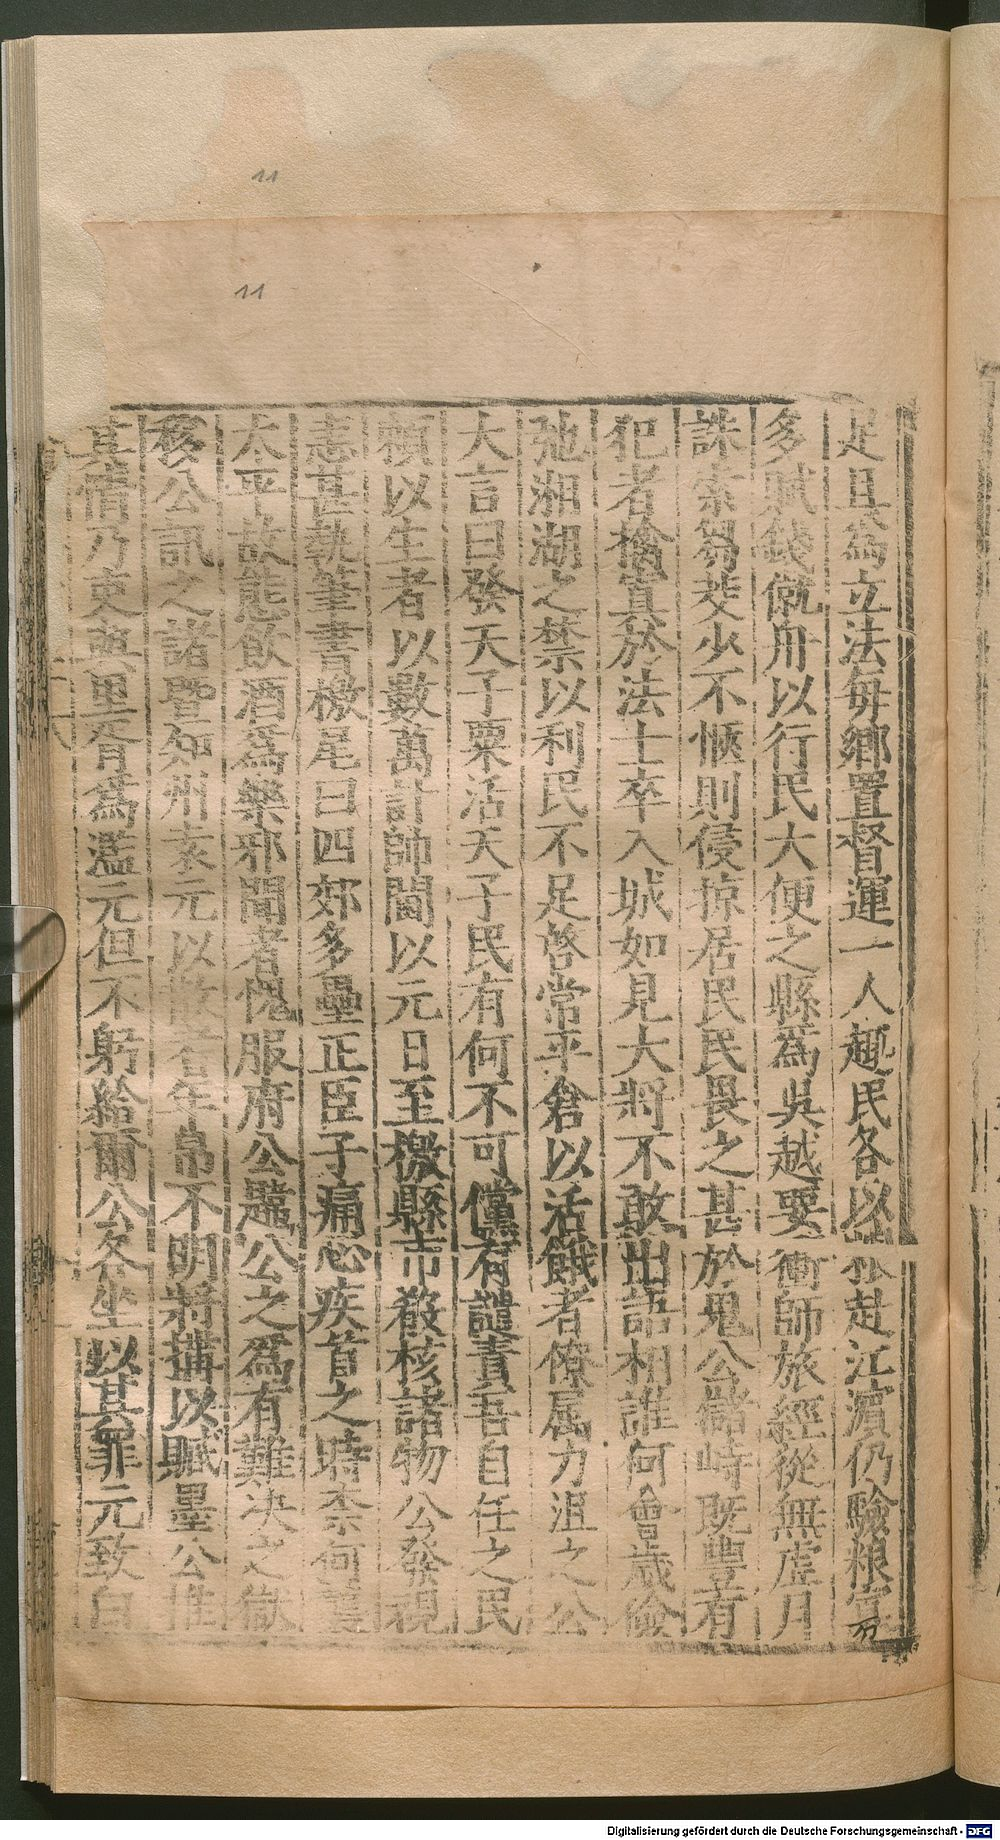 11
11
足且爲立法每鄉置督運一人趣民各以
赴江濵仍驗粮宣
多賦錢僦舟以行民大便之縣爲吳越要衝師旅經從無虛月
誅索芻茭少不愜則侵掠居民民畏之甚於鬼公儲峙既豐有
犯者擒寘於法士卒入城如見大將不敢出語相誰何會歲儉
弛湘湖之禁以利民不足啓常平倉以活餓者僚属力沮之公
大言曰發天子粟活天子民有何不可儻有譴責吾自任之民
頼以生者以數萬計帥閫以元日至檄縣市殽核諸物公發視
恚甚執筆書檄尾曰四郊多壘正臣子痛心疾首之時柰何
太平故態飲酒爲樂邪聞者愧服府公嚚公之爲有難决之獄
移公訊之諸曁知州袁元以散 年帛不明將搆以贓墨公
其情乃吏與里胥爲濫元但不躬給爾公各坐以其罪元致白
Digitalisierung gefördert durch die Deutsche Forschungsgemeinschaft - DFG